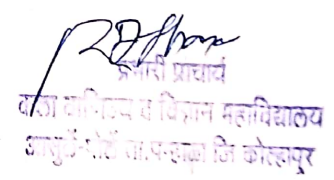 प्रभारी प्राचार्य
कला वाणिज्य व विज्ञान महाविद्यालय
आसुर्ले-पोर्ले ता.पन्हाळा जि कोल्हापूर